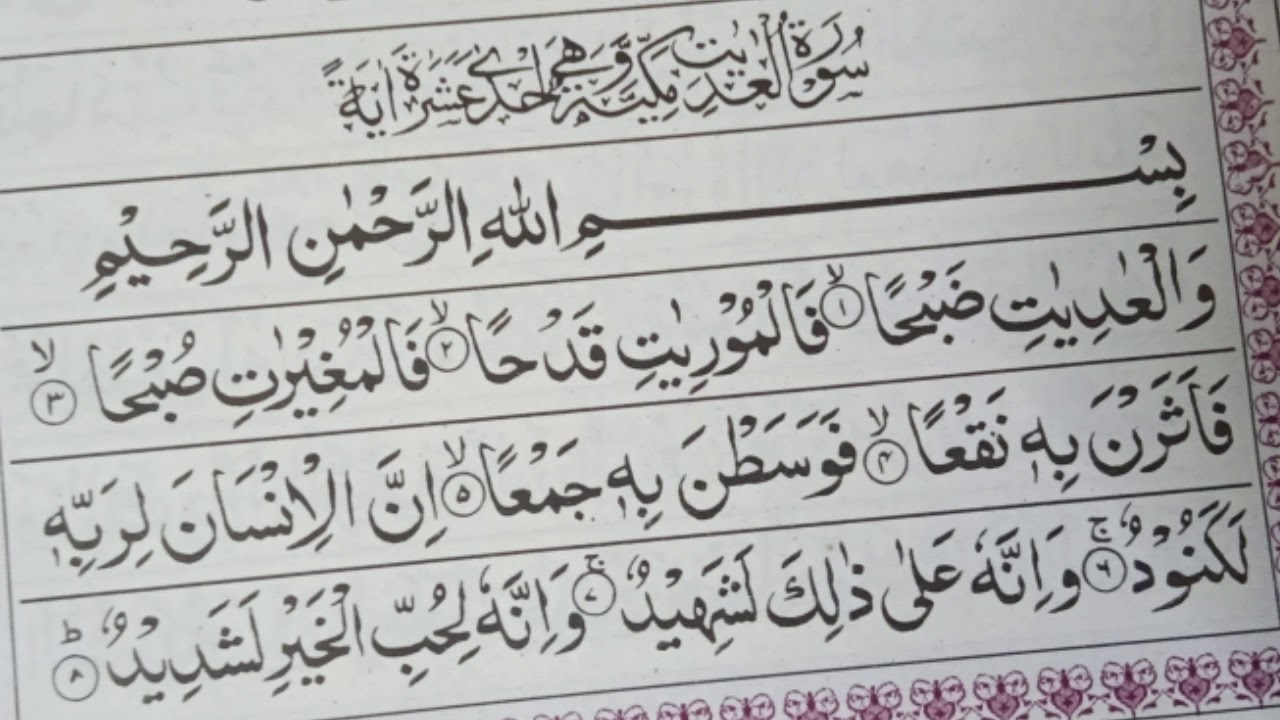 سُوْرَةُ الْعٰدِيٰتِ مَكِّيَّةٌ وَّهِيَ اِحْدٰى عَشَرَةَ اٰيَةً
بِسْمِ اللهِ الرَّحْمٰنِ الرَّحِيْمِ
وَالْعٰدِيٰتِ ضَبْحًا ۙ﴿۱﴾ فَالْمُوْرِيٰتِ قَدْحًا ۙ﴿۲﴾ فَالْمُغِيْرٰتِ صُبْحًا ۙ﴿۳﴾
فَاَثَرْنَ بِهٖ نَقْعًا ۙ﴿۴﴾ فَوَسَطْنَ بِهٖ جَمْعًا ۙ﴿۵﴾ اِنَّ الْاِنْسَانَ لِرَبِّهٖ
لَكَنُوْدٌ ۚ﴿۶﴾ وَاِنَّهٗ عَلٰى ذٰلِكَ لَشَهِيْدٌ ۚ﴿۷﴾ وَاِنَّهٗ لِحُبِّ الْخَيْرِ لَشَدِيْدٌ ؕ﴿۸﴾